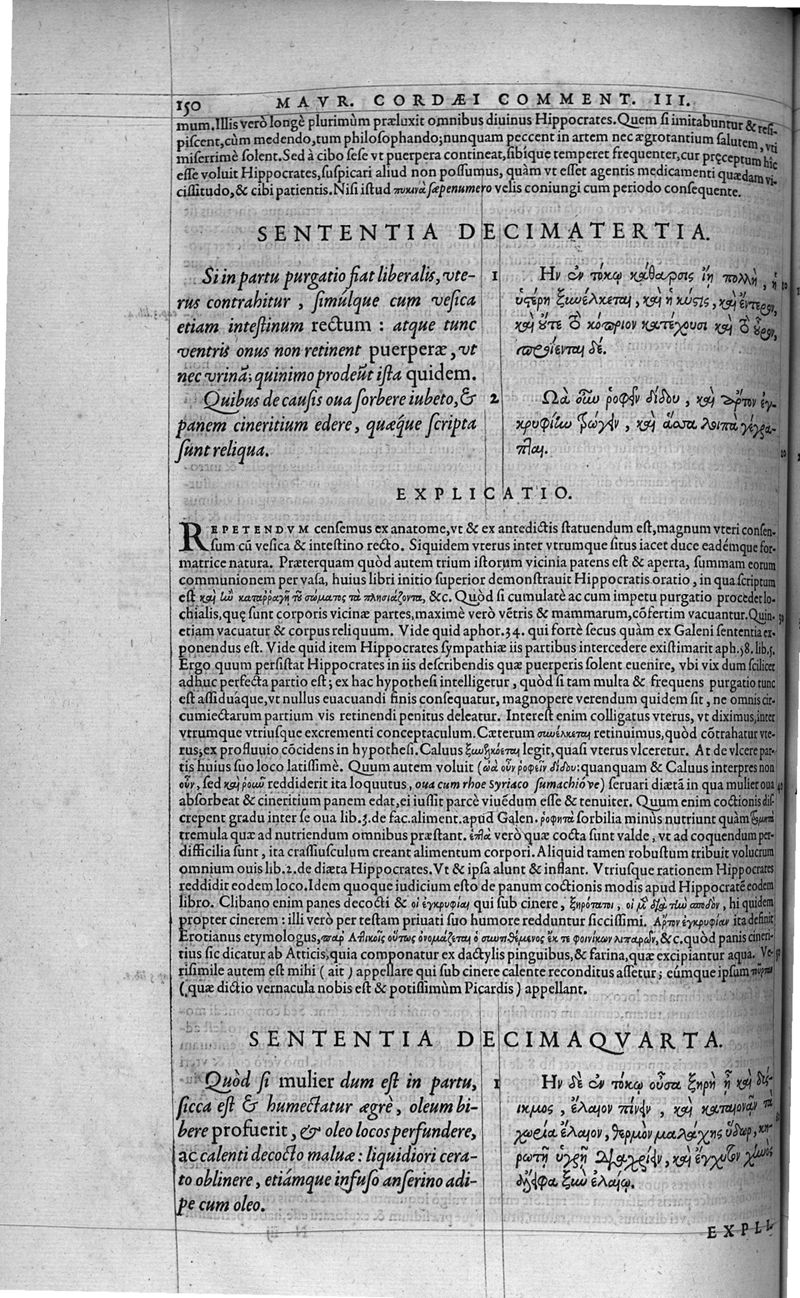 150 MAVR. CORDÆI COMMENT. III.
mum. Illis verò longè plurimùm præluxit omnibus diuinus Hippocrates. Quem si imitabuntur & resi-
piscent, cùm medendo, tum philosophando; nunquam peccent in artem nec ægrotantium salutem, vti
miserrimè solent. Sed à cibo sese vt puerpera contineat, sibique temperet frequenter, cur pręceptum hîc
esse voluit Hippocrates, suspicari aliud non possumus, quàm vt esset agentis medicamenti quædam vi-
cissitudo, & cibi patientis. Nisi istud πυκινὰ sæpenumero velis coniungi cum periodo consequente.
SENTENTIA DECIMATERTIA.
Si in partu purgatio fiat liberalis, vte-
rus contrahitur, simúlque cum vesica
etiam intestinum rectum: atque tunc
ventris onus non retinent puerperæ, vt
nec vrinã; quinimo prodeũt ista quidem.
Quibus de causis oua sorbere iubeto, &
panem cineritium edere, quæq́ue scripta
sunt reliqua.
1 Ην ἐν τόκῳ κάθαρσις ἴῃ πολλὴ, ἡ
ὑστέρη ξυνέλκεται, καὶ ἡ κύστις, καὶ ἔντερον,
καὶ οὔτε τὸ κόπριον κατέχουσι καὶ τὸ οὖρον,
προΐενται δέ.
2 Ωὰ οὖν ῥοφεῖν δίδου, καὶ ἄρτον ἐγ-
κρυφίαν τρώγειν, καὶ ἅσσα λοιπὰ γέγρα-
πται.
EXPLICATIO.
REPETENDVM censemus ex anatome, vt & ex antedictis statuendum est, magnum vteri consen-
sum cũ vesica & intestino recto. Siquidem vterus inter vtrumque situs iacet duce eadémque for-
matrice natura. Præterquam quòd autem trium istorum vicinia patens est & aperta, summam eorum
communionem per vasa, huius libri initio superior demonstrauit Hippocratis oratio, in qua scriptum
est καὶ ἢν καταῤῥαγῇ τοῦ σώματος τὰ πλησιάζοντα, &c. Quòd si cumulatè ac cum impetu purgatio procedet lo-
chialis, quę sunt corporis vicinæ partes, maximè verò vẽtris & mammarum, cõfertim vacuantur. Quin-
etiam vacuatur & corpus reliquum. Vide quid aphor. 34. qui fortè secus quàm ex Galeni sententia ex-
ponendus est. Vide quid item Hippocrates sympathiæ iis partibus intercedere existimarit aph. 38. lib. 5.
Ergo quum persistat Hippocrates in iis describendis quæ puerperis solent euenire, vbi vix dum scilicet
adhuc perfecta partio est; ex hac hypothesi intelligetur, quòd si tam multa & frequens purgatio tunc
est assiduáque, vt nullus euacuandi finis consequatur, magnopere verendum quidem sit, ne omnis cir-
cumiectarum partium vis retinendi penitus deleatur. Interest enim colligatus vterus, vt diximus, inter
vtrumque vtriusque excrementi conceptaculum. Cæterum συνέλκεται retinuimus, quòd cõtrahatur vte-
rus, ex profluuio cõcidens in hypothesi. Caluus legit, quasi vterus vlceretur. At de vlcere par-
tis huius suo loco latissimè. Quum autem voluit (ὠὰ οὖν ῥοφεῖν δίδου: quanquam & Caluus interpres non
οὖν, sed καὶ ῥοιοῦ reddiderit ita loquutus, oua cum rhoe Syriaco sumachióve) seruari diætã in qua mulier oua
absorbeat & cineritium panem edat, ei iussit parcè viuẽdum esse & tenuiter. Quum enim coctionis dis-
crepent gradu inter se oua lib. 3. de fac. aliment. apud Galen. ῥοφητὰ sorbilia minùs nutriunt quàm τρομητὰ
tremula quæ ad nutriendum omnibus præstant. ἑφθὰ verò quæ cocta sunt valde, vt ad coquendum per-
difficilia sunt, ita crassiusculum creant alimentum corpori. Aliquid tamen robustum tribuit volucrum
omnium ouis lib. 2. de diæta Hippocrates. Vt & ipsa alunt & inflant. Vtriusque rationem Hippocrates
reddidit eodem loco. Idem quoque iudicium esto de panum coctionis modis apud Hippocratẽ eodem
libro. Clibano enim panes decocti & οἱ ἐγκρυφίαι qui sub cinere, ξηρότατοι, οἱ μὲν διὰ τὴν σποδὸν, hi quidem
propter cinerem: illi verò per testam priuati suo humore redduntur siccissimi. Αρτον ἐγκρυφίαν ita definit
Erotianus etymologus, παρ' Ατλικοῖς οὕτως ὀνομάζεται ὁ συντιθέμενος ἔκ τε φοινίκων λιπαρῶν, &c. quòd panis cineri-
tius sic dicatur ab Atticis, quia componatur ex dactylis pinguibus, & farina, quæ excipiantur aqua. Ve-
risimile autem est mihi (ait) appellare qui sub cinere calente reconditus assetur; eúmque ipsum
(quæ dictio vernacula nobis est & potissimùm Picardis) appellant.
SENTENTIA DECIMAQVARTA.
Quòd si mulier dum est in partu,
sicca est & humectatur ægrè, oleum bi-
bere profuerit, & oleo locos perfundere,
ac calenti decocto maluæ: liquidiori cera-
to oblinere, etiámque infuso anserino adi-
pe cum oleo.
1 Ην δὲ ἐν τόκῳ οὖσα ξηρὴ ἢ καὶ δύσ-
ικμος, ἔλαιον πίνειν, καὶ καταιονᾷν τὰ
χωρία ἔλαιον, θερμὸν μαλάχης ὕδωρ, κη-
ρωτῇ ὑγρῇ διαχρίειν, καὶ ἐγχύτον χηνὸς
ἄλειφα ξὺν ἐλαίῳ.
EXPLI-